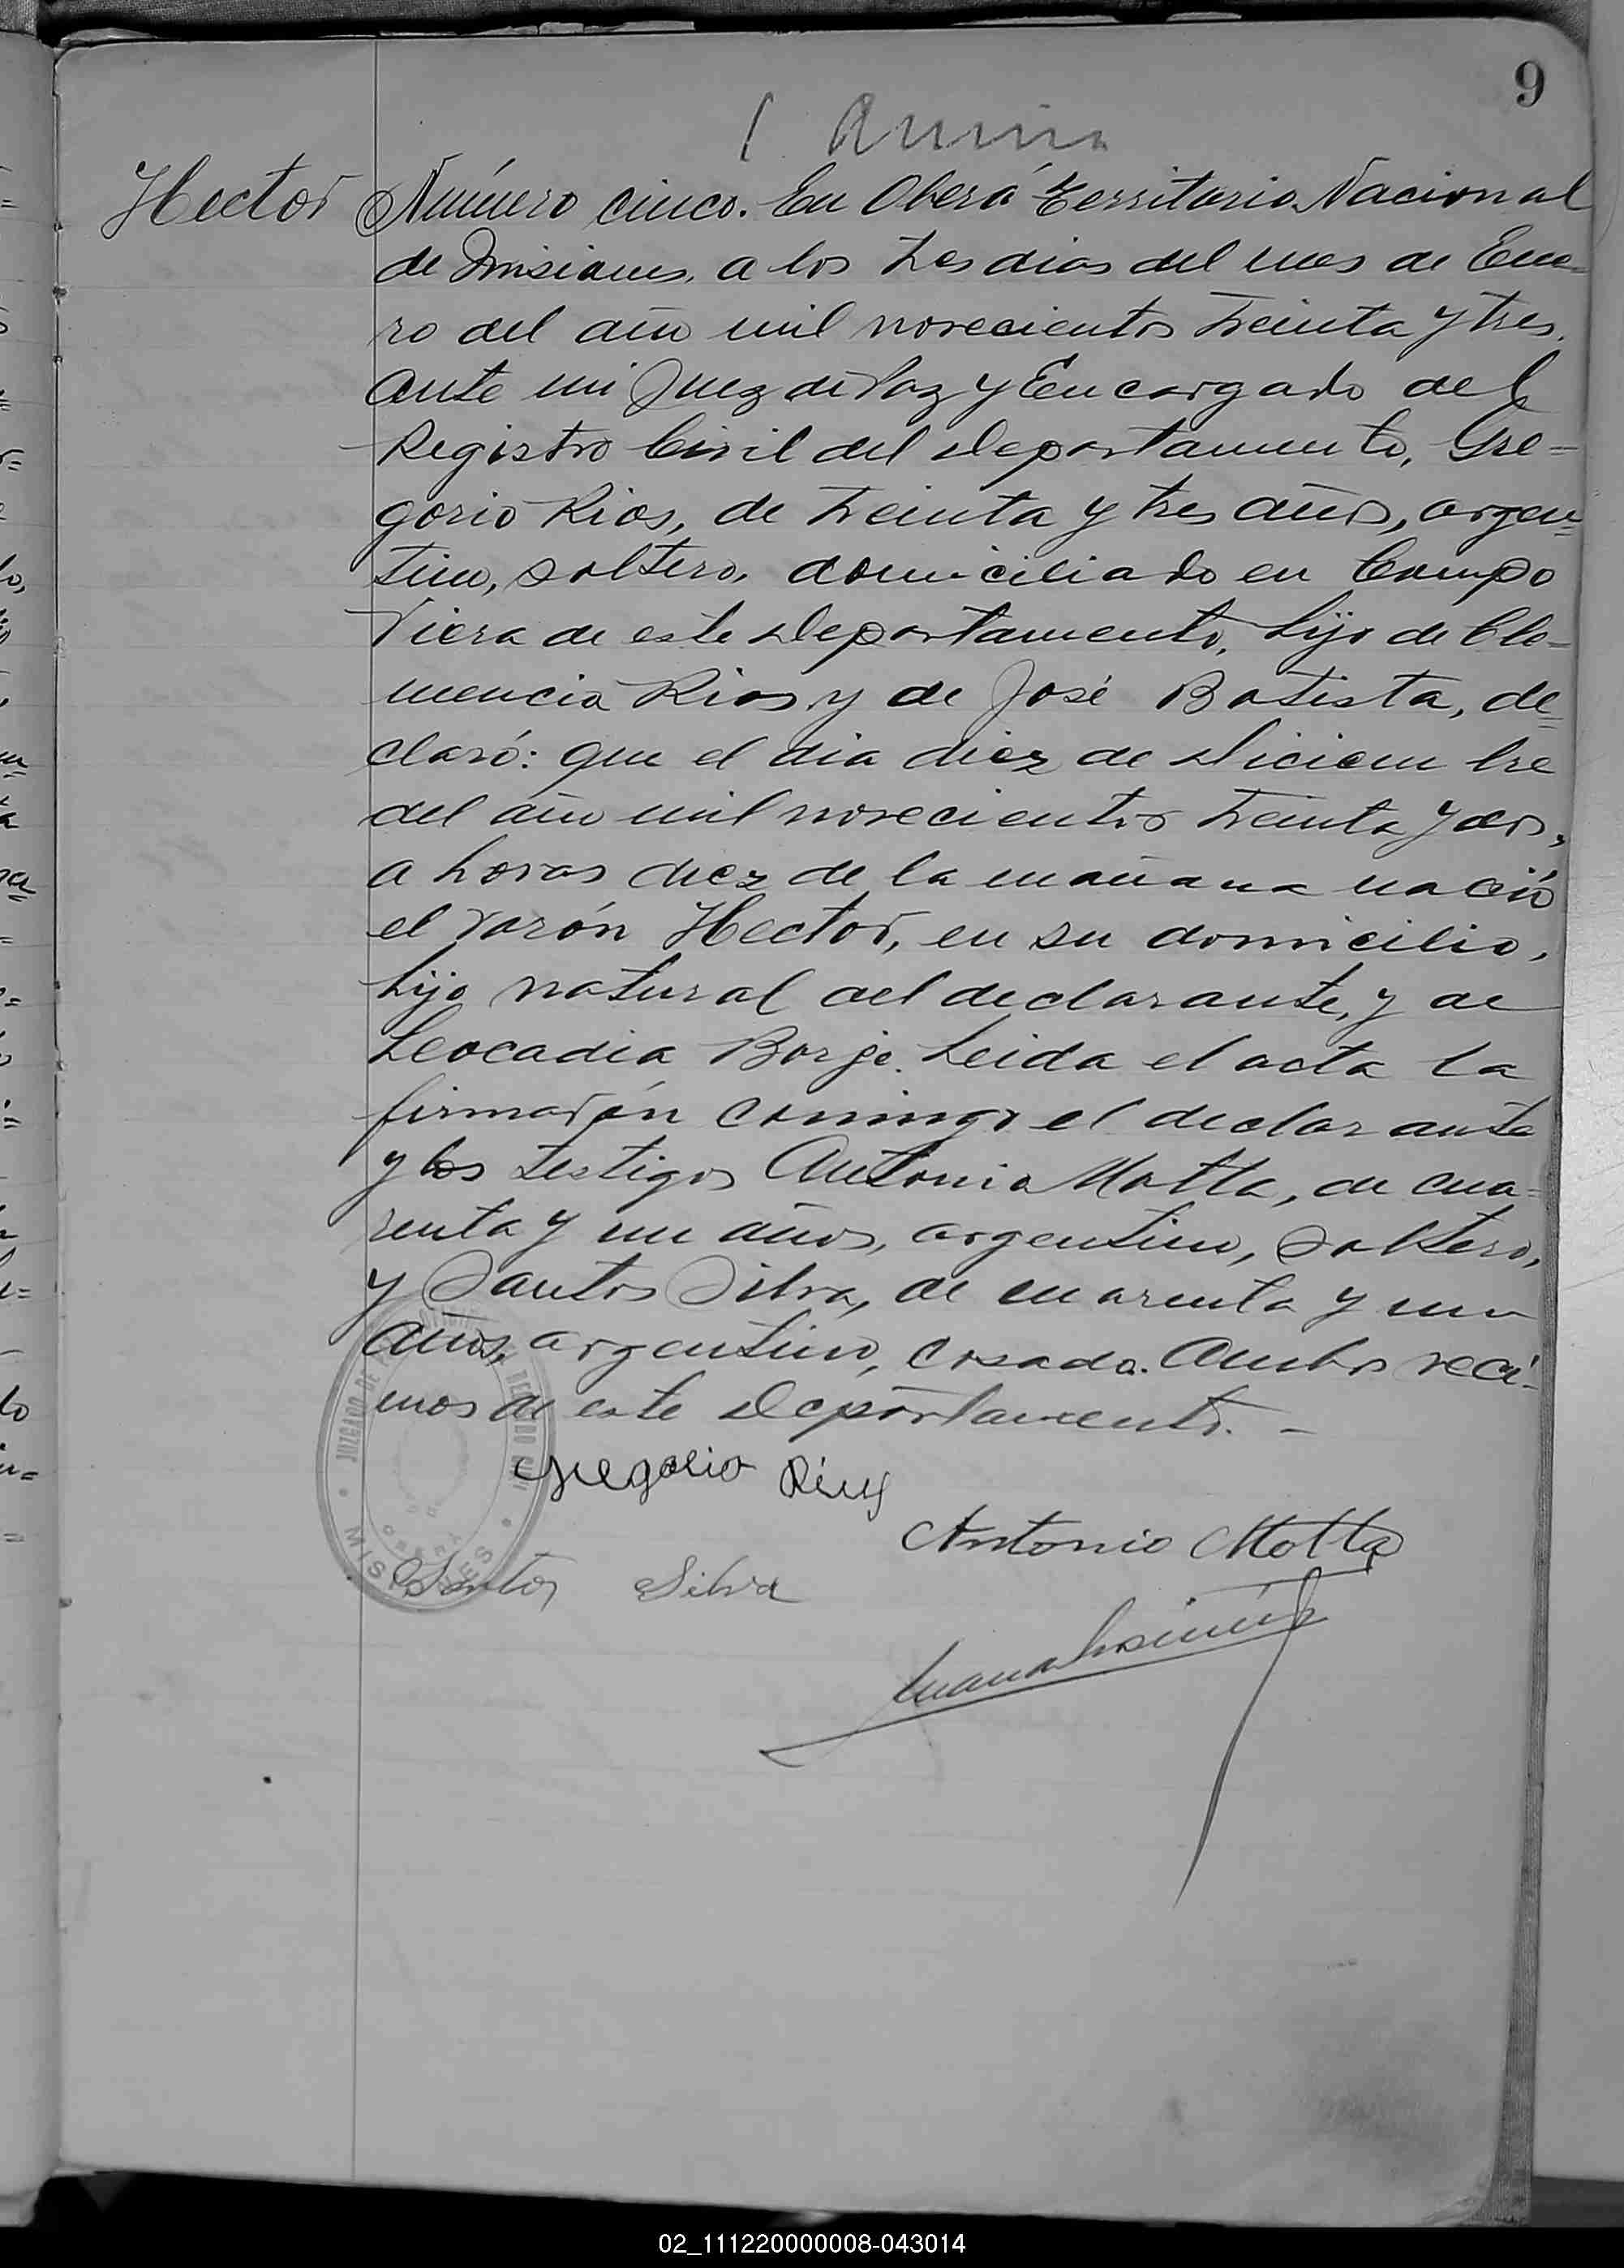 9
Hector
Número cinco. En Oberá Territorio Nacional
de Misiones, a los tres dias del mes de Ene=
ro del año mil novecientos treinta y tres,
ante mi Juez de Paz y Encargado del
Registro Civil del Departamento, Gre=
gorio Rios, de treinta y tres años, argen=
tino, soltero, domiciliado en Campo
Viera de este Departamento, hijo de Cle=
mencia Rios y de José Batista, de=
claró: que el dia diez de Diciembre
del año mil novecientos treinta y dos,
a horas diez de la mañana nació
el varón Hector, en su domicilio,
hijo natural del declarante, y de
Leocadia Borje. Leida el acta la
firmarón conmigo el declarante
y los testigos Antonio Motta, de cua=
renta y un años, argentino, soltero,
y Santos Silva, de cuarenta y un
años, argentino, casado. Ambos veci-
nos de este Departamento. -
Gregorio Rios
Antonio Motta
Santos Silva
JUZGADO DE
MISIONES
02_111220000008-043014